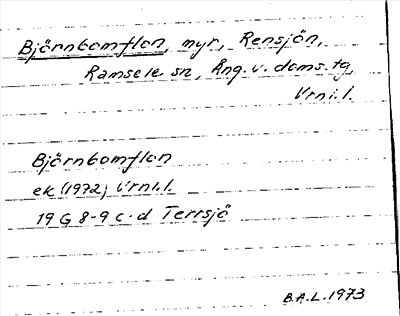 Björnbomflon, myr, Rensjön,
Ramsele sn, Ång. v. doms. tg,
Vrni.l.
Björnbomflon
ek (1972) Vrni.l.
19 G 8-9 c-d Terrsjö
B.A.L. 1973